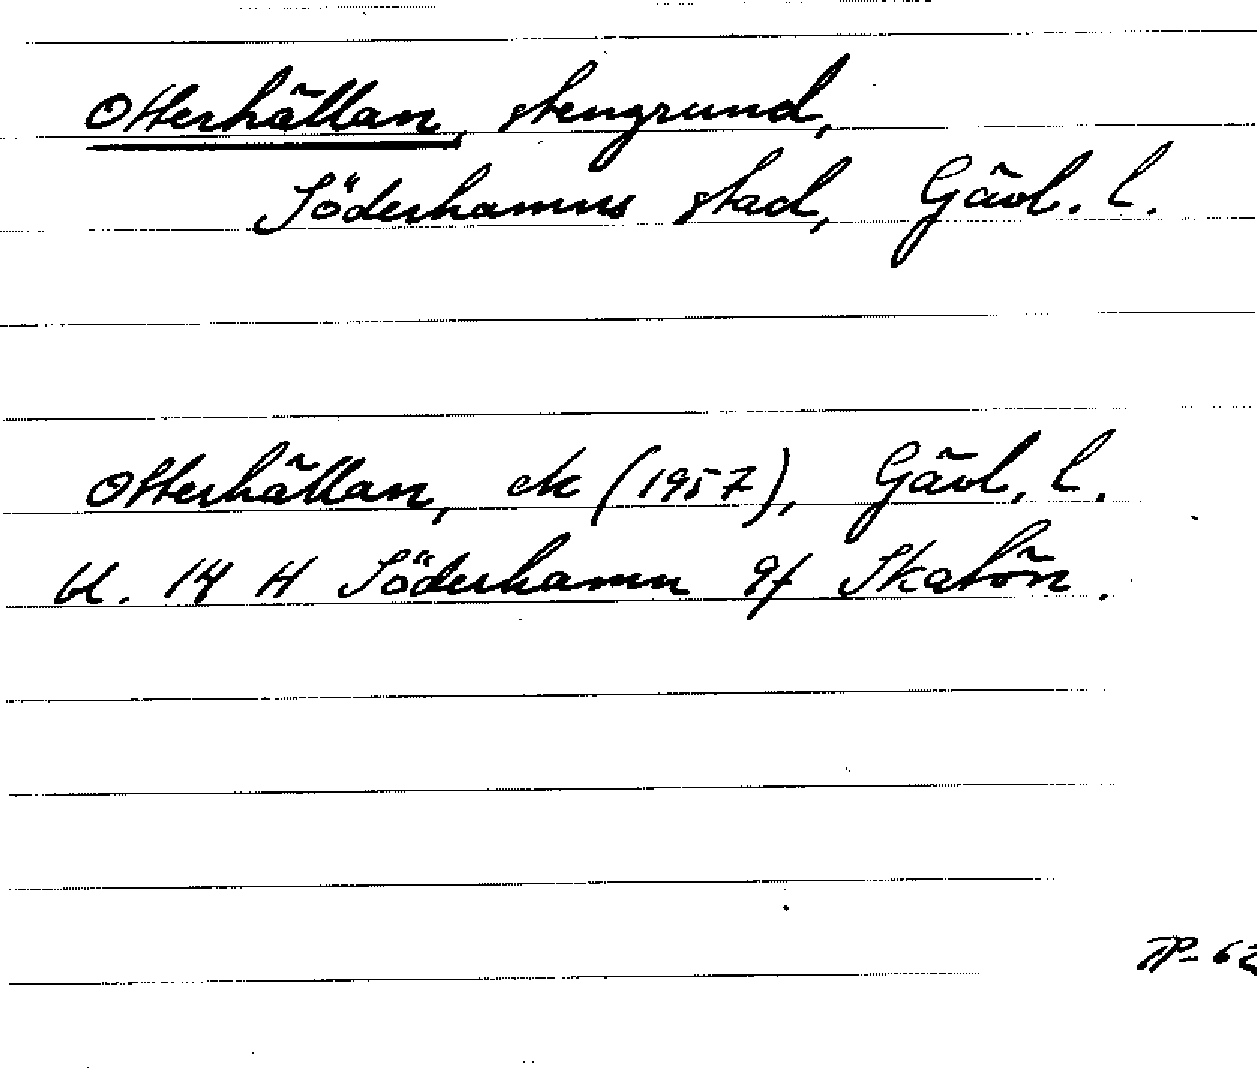 Otterhällan, stengrund,
Söderhamns stad, Gävl. l.
Otterhällan, ek (1957), Gävl. l.
bl. 14 H Söderhamn 9f Skatön.
JP-62